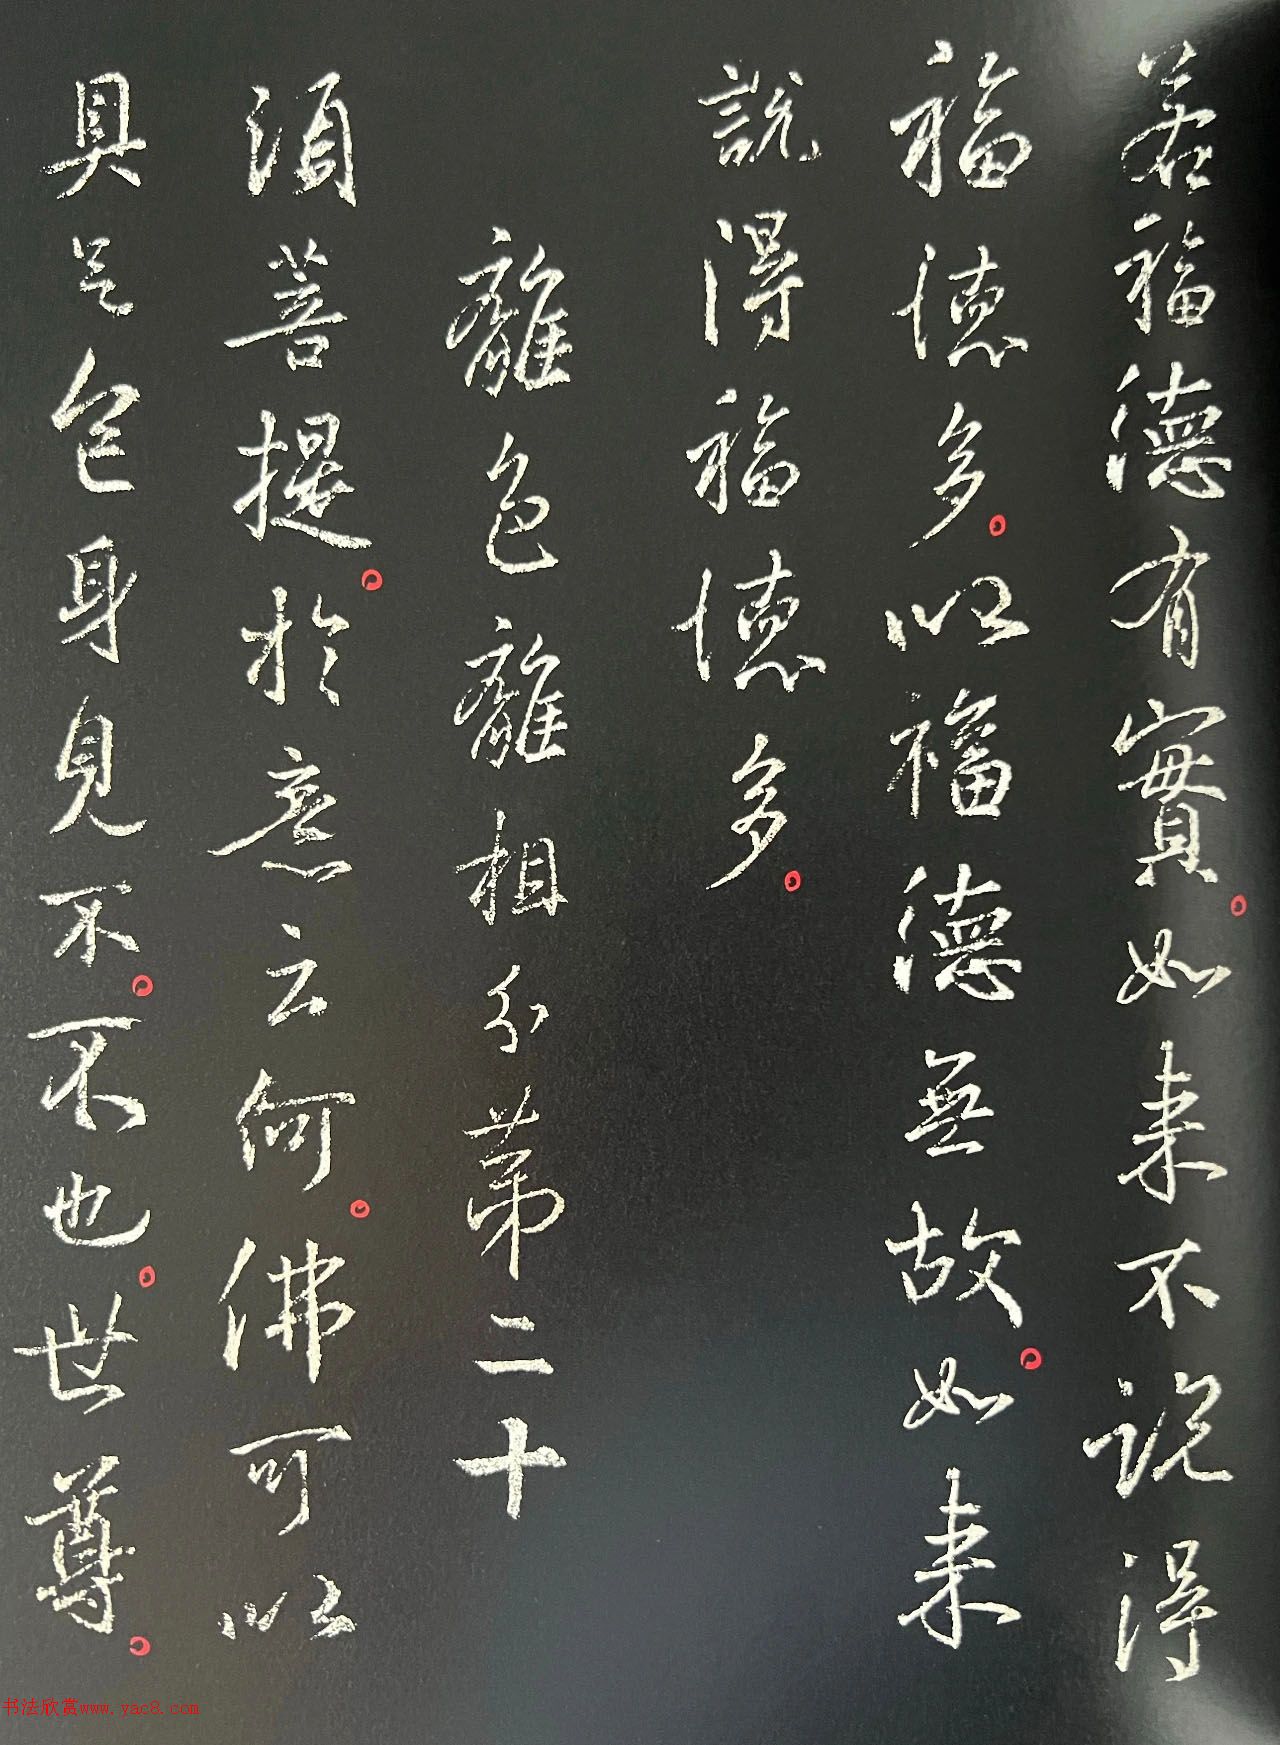 若福德有實。如来不說得
福德多。以福德無故。如来
說得福德多。
離色離相分第二十
須菩提。於意云何。佛可以
具足色身見不。不也。世尊。
书法欣赏www.yac8.com